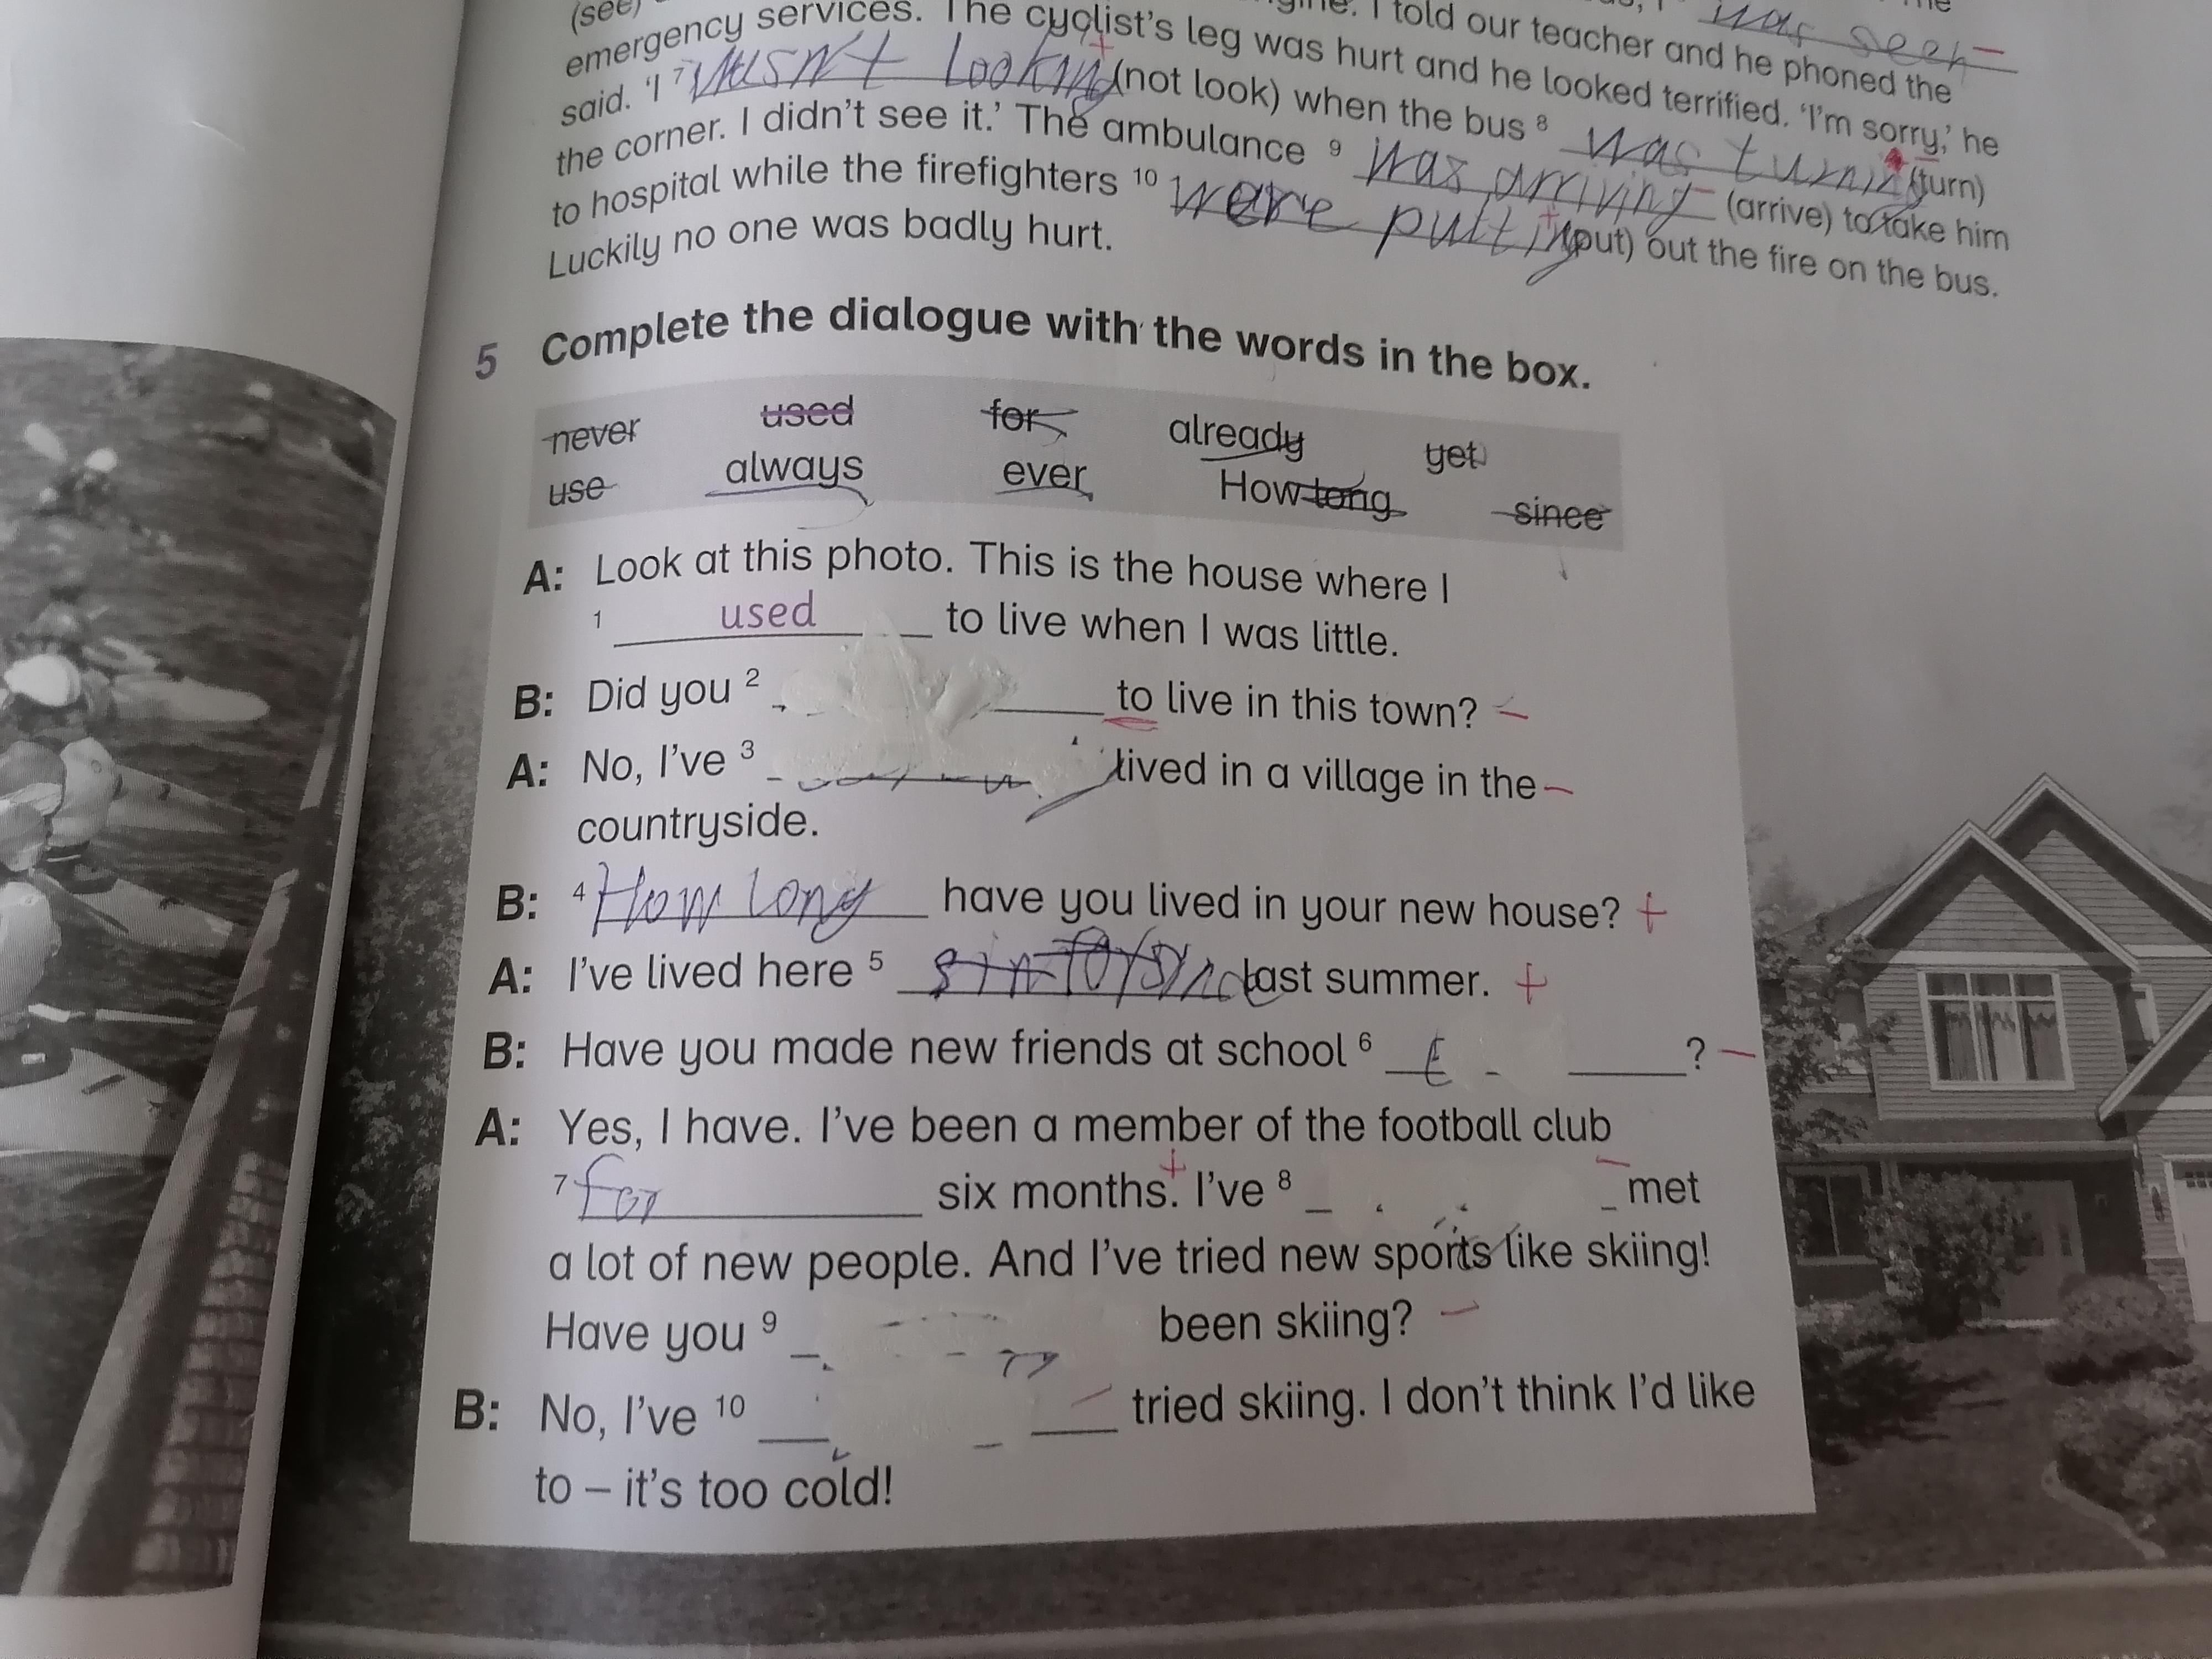 (see)
was seen –
emergency services. The cyclist's leg was hurt and he looked terrified. 'I'm sorry,' he
I told our teacher and he phoned the
said. 'I 7 wasn't looking + (not look) when the bus 8 was turning (turn)
the corner. I didn't see it.' The ambulance 9 was arriving – (arrive) to take him
to hospital while the firefighters 10 were putting + (put) out the fire on the bus.
Luckily no one was badly hurt.
5 Complete the dialogue with the words in the box.
never used for already yet
use always ever How long since
A: Look at this photo. This is the house where I
1 used to live when I was little.
B: Did you 2 to live in this town? –
A: No, I've 3 lived in a village in the –
countryside.
B: 4 How long have you lived in your new house? +
A: I've lived here 5 since last summer. +
B: Have you made new friends at school 6 ? –
A: Yes, I have. I've been a member of the football club
7 for six months. + I've 8 – met
a lot of new people. And I've tried new sports like skiing!
Have you 9 been skiing? –
B: No, I've 10 – tried skiing. I don't think I'd like
to – it's too cold!